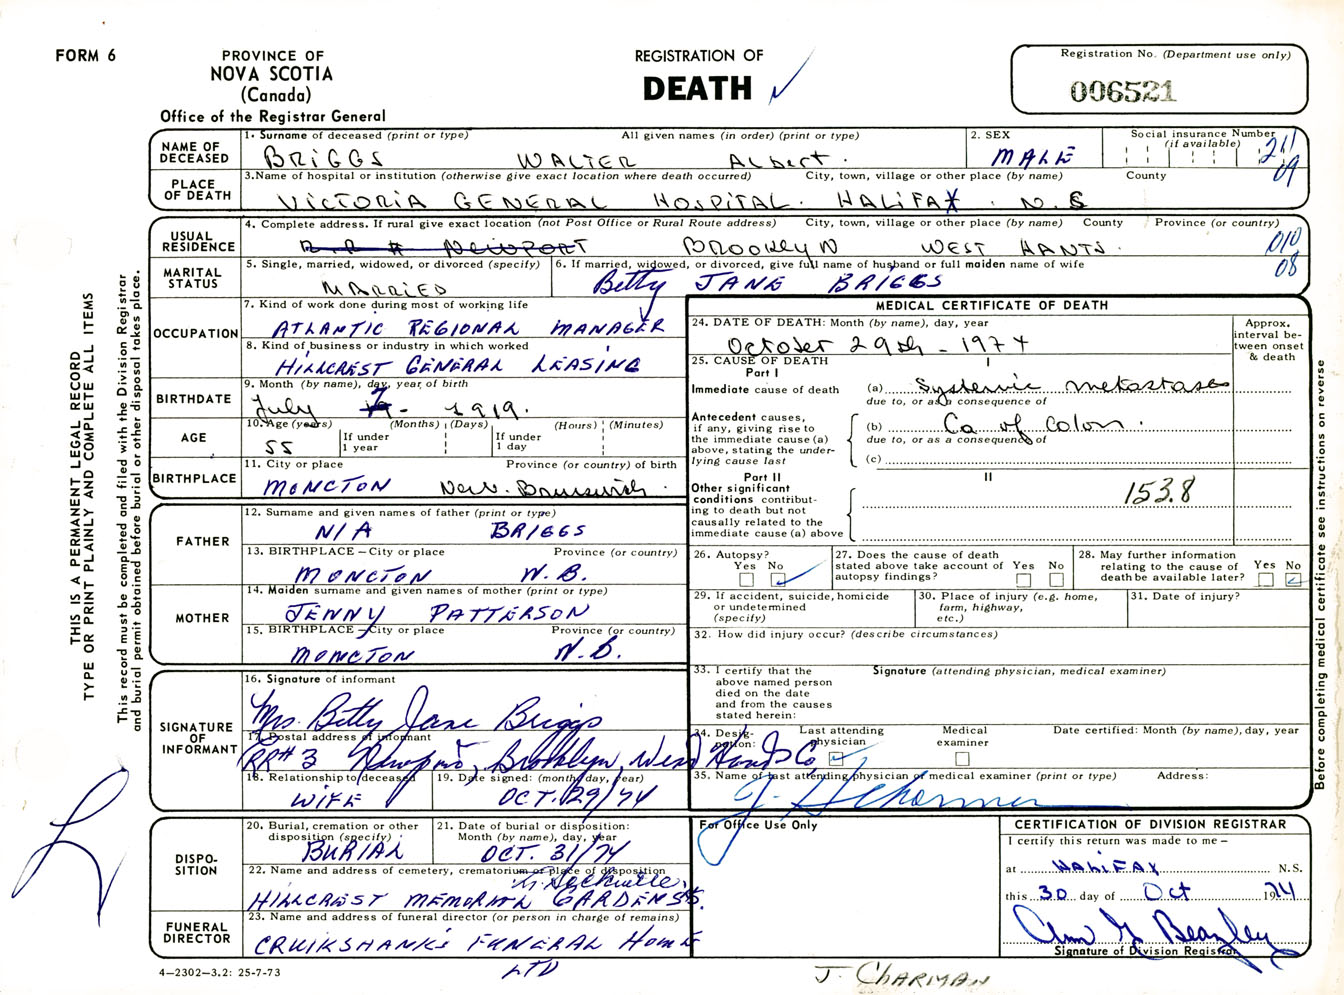 FORM 6
PROVINCE OF
NOVA SCOTIA
(Canada)
Office of the Registrar General
REGISTRATION OF
DEATH
Registration No. (Department use only)
006521
THIS IS A PERMANENT LEGAL RECORD
TYPE OR PRINT PLAINLY AND COMPLETE ALL ITEMS
This record must be completed and filed with the Division Registrar
and burial permit obtained before burial or other disposal takes place.
NAME OF DECEASED
1. Surname of deceased (print or type) All given names (in order) (print or type)
BRIGGS WALTER Albert.
2. SEX
MALE
Social insurance Number (if available)
211
09
PLACE OF DEATH
3. Name of hospital or institution (otherwise give exact location where death occurred) City, town, village or other place (by name) County
VICTORIA GENERAL HOSPITAL. HALIFAX. N.S
USUAL RESIDENCE
4. Complete address. If rural give exact location (not Post Office or Rural Route address) City, town, village or other place (by name) County Province (or country)
R R # NEWPORT BROOKLYN WEST HANTS.
010
08
MARITAL STATUS
5. Single, married, widowed, or divorced (specify)
MARRIED
6. If married, widowed, or divorced, give full name of husband or full maiden name of wife
Betty JANE BRIGGS
OCCUPATION
7. Kind of work done during most of working life
ATLANTIC REGIONAL MANAGER
8. Kind of business or industry in which worked
HILLCREST GENERAL LEASING
BIRTHDATE
9. Month (by name), day, year of birth
July 7 - 1919.
AGE
10. Age (years) (Months) (Days) (Hours) (Minutes)
55 If under 1 year If under 1 day
BIRTHPLACE
11. City or place Province (or country) of birth
MONCTON New. Brunswick.
FATHER
12. Surname and given names of father (print or type)
N/A BRIGGS
13. BIRTHPLACE – City or place Province (or country)
MONCTON N.B.
MOTHER
14. Maiden surname and given names of mother (print or type)
JENNY PATTERSON
15. BIRTHPLACE – City or place Province (or country)
MONCTON N.B.
SIGNATURE OF INFORMANT
16. Signature of informant
Mrs. Betty Jane Briggs
17. Postal address of informant
RR# 3 Newport, Brooklyn, West Hants Co,
18. Relationship to deceased
WIFE
19. Date signed: (month, day, year)
OCT. 29/74
DISPOSITION
20. Burial, cremation or other disposition (specify)
BURIAL
21. Date of burial or disposition: Month (by name), day, year
OCT. 31/74
22. Name and address of cemetery, crematorium or place of disposition
Sackville
HILLCREST MEMORIAL GARDENS
FUNERAL DIRECTOR
23. Name and address of funeral director (or person in charge of remains)
CRUIKSHANK'S FUNERAL HOME
LTD
4–2302–3.2: 25-7-73
MEDICAL CERTIFICATE OF DEATH
24. DATE OF DEATH: Month (by name), day, year
October 29th - 1974
Approx. interval between onset & death
25. CAUSE OF DEATH
I
Part I
Immediate cause of death
(a) Systemic metastases
due to, or as a consequence of
Antecedent causes, if any, giving rise to the immediate cause (a) above, stating the underlying cause last
(b) Ca of Colon.
due to, or as a consequence of
(c)
Part II
II
Other significant conditions contributing to death but not causally related to the immediate cause (a) above
153.8
26. Autopsy?
Yes No
27. Does the cause of death stated above take account of autopsy findings?
Yes No
28. May further information relating to the cause of death be available later?
Yes No
29. If accident, suicide, homicide or undetermined (specify)
30. Place of injury (e.g. home, farm, highway, etc.)
31. Date of injury?
32. How did injury occur? (describe circumstances)
33. I certify that the above named person died on the date and from the causes stated herein:
Signature (attending physician, medical examiner)
34. Designation:
Last attending physician
Medical examiner
Date certified: Month (by name), day, year
35. Name of last attending physician or medical examiner (print or type) Address:
For Office Use Only
CERTIFICATION OF DIVISION REGISTRAR
I certify this return was made to me –
at HALIFAX N.S.
this 30 day of Oct 1974
Ann G Beazley
Signature of Division Registrar
J. CHARMAN
Before completing medical certificate see instructions on reverse